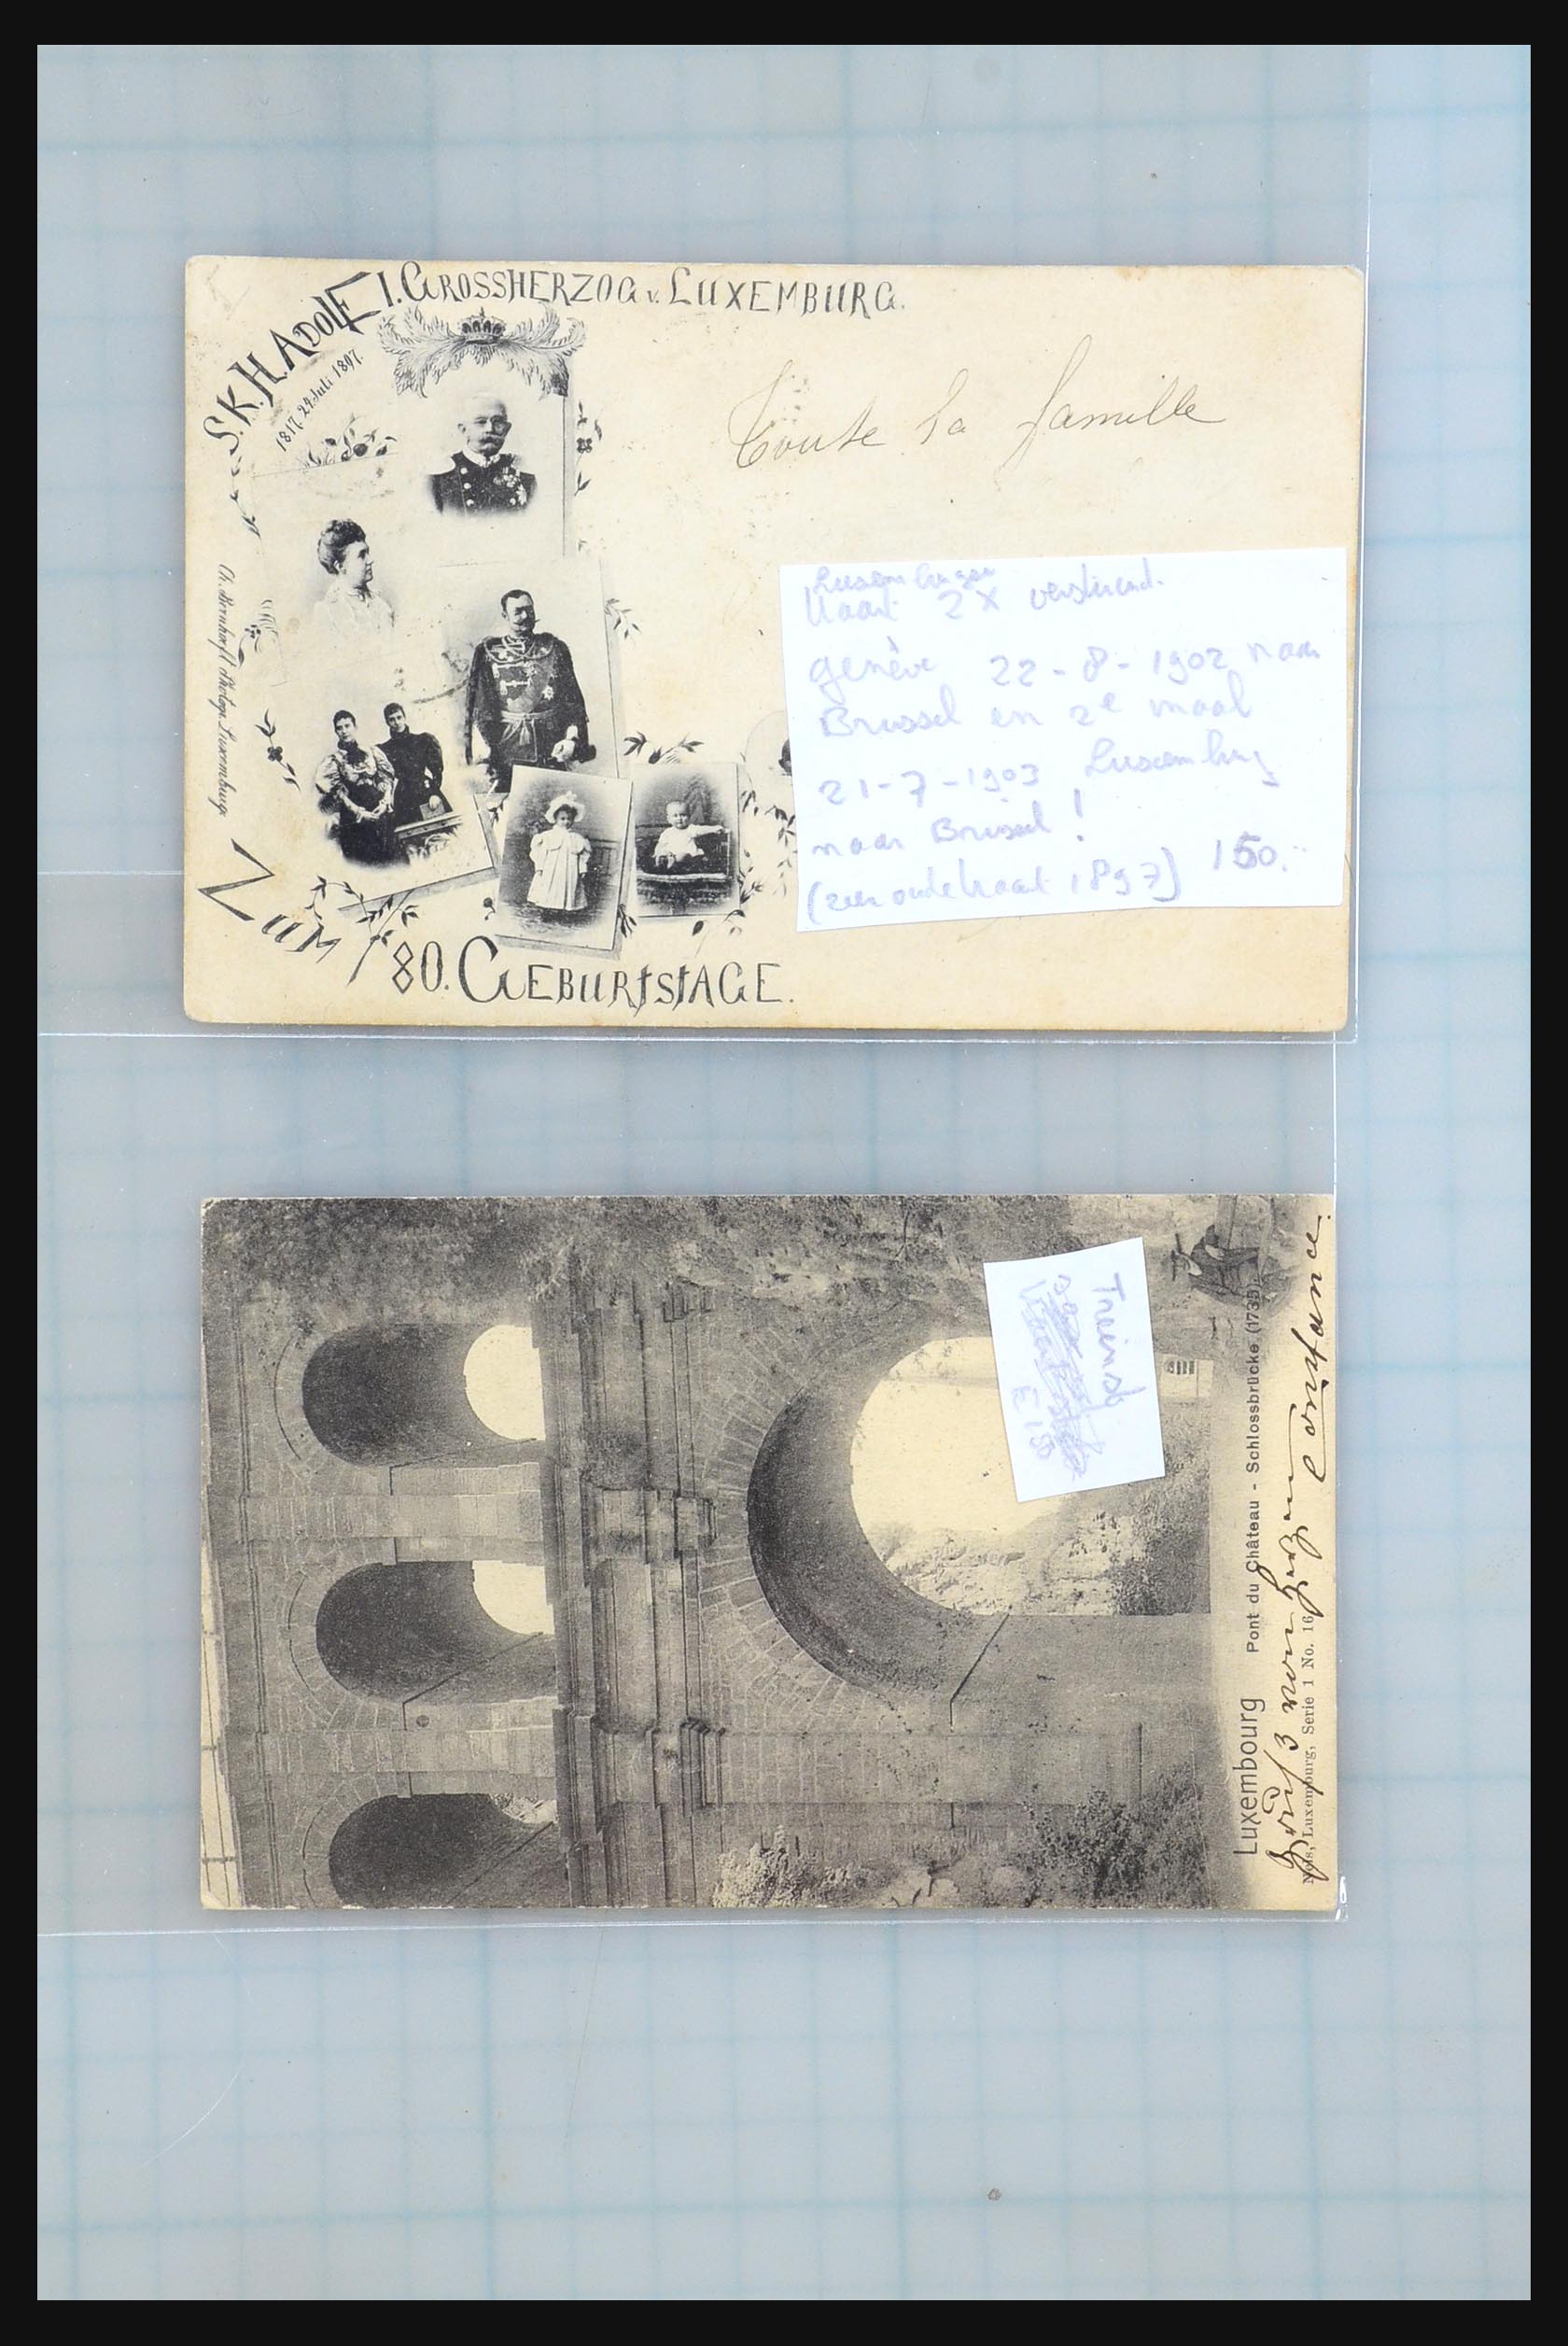 S.K.H. ADOLF I. GROSSHERZOG v. LUXEMBURG.
1817. 24 Juli 1897.
Toute la famille
Ch. Bernhoeft Photogr. Luxemburg.
ZUM 80. GEBURTSTAGE.
Luxemburgse
kaart 2 X verstuurd.
genève 22-8-1902 naar
Brussel en 2e maal
21-7-1903 Luxemburg
naar Brussel !
(zeer oude kaart 1897) 150.-
Treinst
Luxembourg Pont du Château - Schlossbrücke (1735)
Nels, Luxembourg, Serie 1 No. 16
Constance